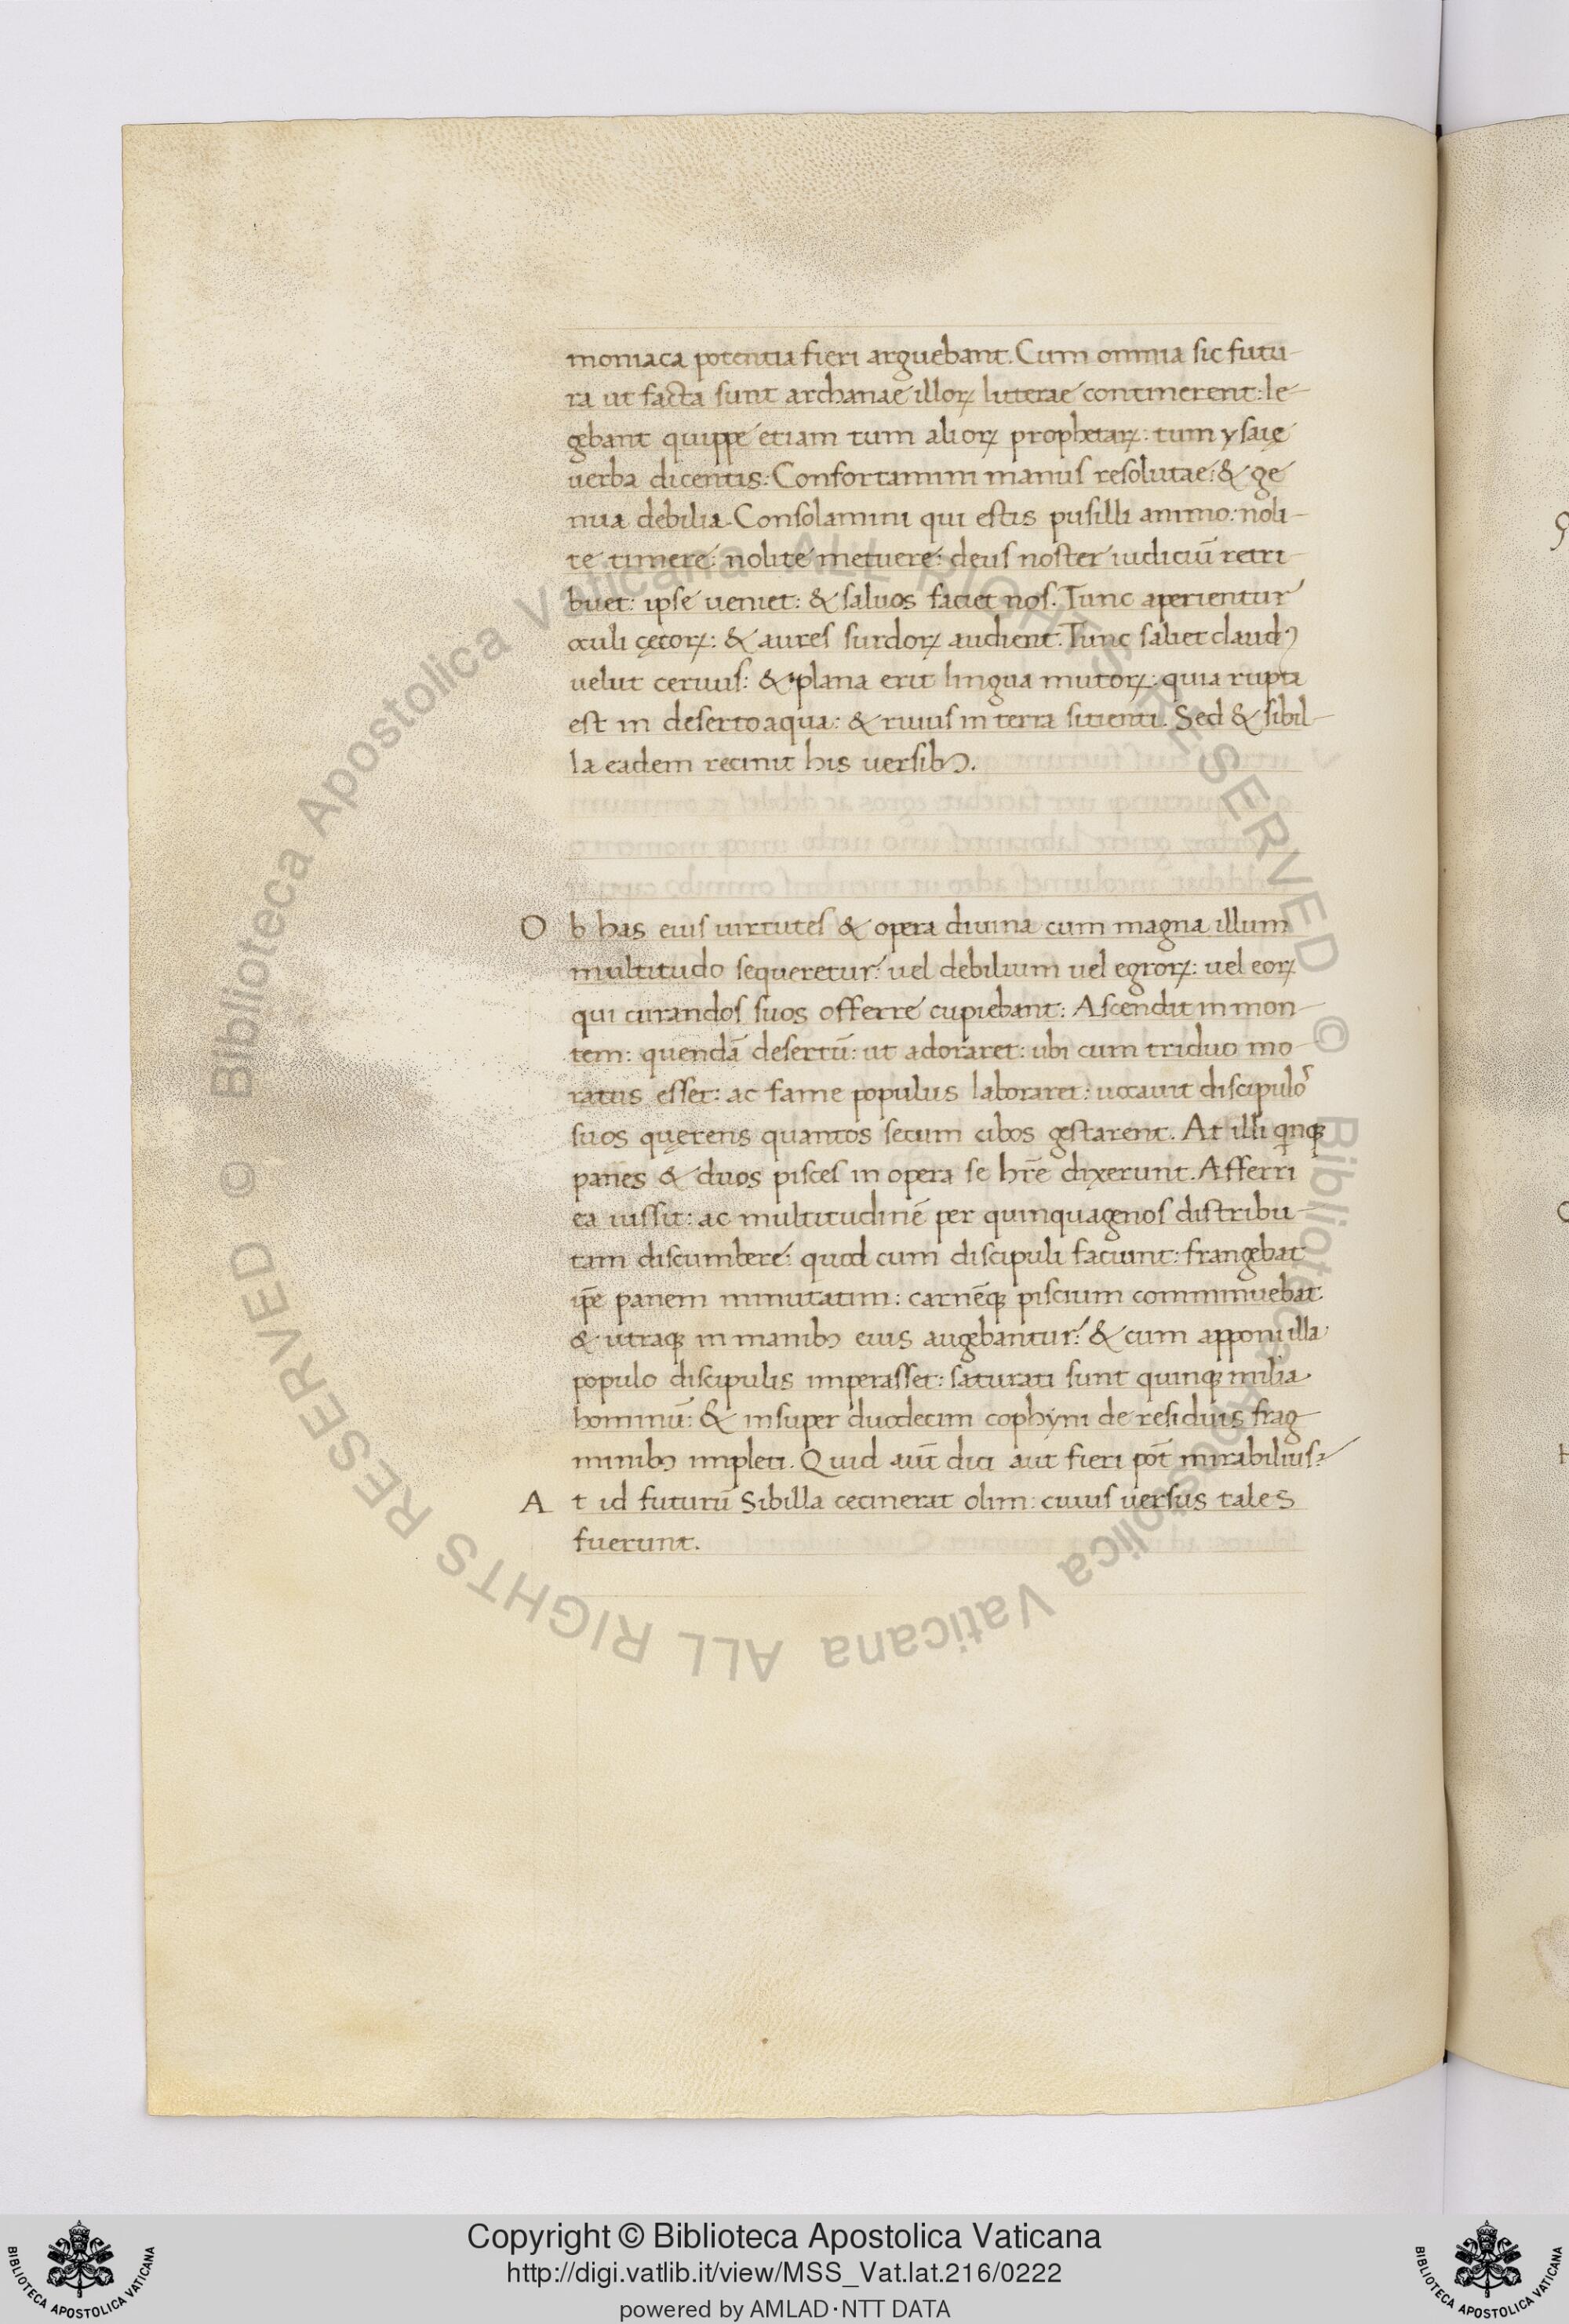 moniaca potentia fieri arguebant. Cum omnia sic futu-
ra ut facta sunt archanae illoꝝ litterae continerent: le-
gebant quippe etiam tum alioꝝ prophetaꝝ: tum ysaię
uerba dicentis: Confortamini manus resolutae: & ge
nua debilia. Consolamini qui estis pusilli animo: noli-
te timere: nolite metuere: deus noster iudiciū retri-
buet: ipse ueniet: & saluos faciet nos. Tunc aperientur
oculi cęcoꝝ: & aures surdoꝝ audient. Tunc saliet claudꝰ
uelut ceruus: & plana erit lingua mutoꝝ: quia rupta
est in deserto aqua: & riuus in terra sitienti. Sed & sibil-
la eadem recinit his uersibꝰ.
O b has eius uirtutes & opera diuina cum magna illum
multitudo sequeretur: uel debilium uel egroꝝ: uel eoꝝ
qui curandos suos offerre cupiebant: Ascendit in mon-
tem: quendā desertū: ut adoraret: ubi cum triduo mo-
ratus esset: ac fame populus laboraret: uocauit discipulos
suos quęrens quantos secum cibos gestarent. At illi qnqꝫ
panes & duos pisces in opera se hr̄e dixerunt. Afferri
ea iussit: ac multitudinē per quinquagenos distribu-
tam discumbere: quod cum discipuli faciunt: frangebat
ip̄e panem minutatim: carnēqꝫ piscium comminuebat
& utraqꝫ in manibꝰ eius augebantur: & cum apponi illa
populo discipulis imperasset: saturati sunt quinqꝫ milia
hominū: & insuper duodecim cophyni de residuis frag-
minibꝰ impleti. Quid aut̄ dici aut fieri pōt mirabilius?
A t id futurū Sibilla cecinerat olim: cuius uersus tales
fuerunt.
© Biblioteca Apostolica Vaticana ALL RIGHTS RESERVED
© Biblioteca Apostolica Vaticana ALL RIGHTS RESERVED
Copyright © Biblioteca Apostolica Vaticana
http://digi.vatlib.it/view/MSS_Vat.lat.216/0222
powered by AMLAD·NTT DATA
BIBLIOTECA APOSTOLICA VATICANA
BIBLIOTECA APOSTOLICA VATICANA